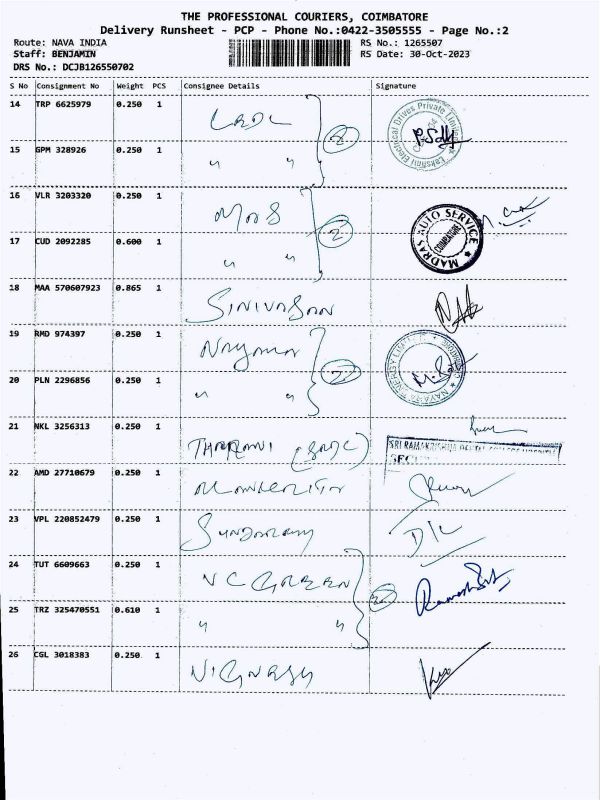 THE PROFESSIONAL COURIERS, COIMBATORE
Delivery Runsheet - PCP - Phone No.:0422-3505555 - Page No.:2
Route: NAVA INDIA RS No.: 1265507
Staff: BENJAMIN RS Date: 30-Oct-2023
DRS No.: DCJB126550702
S No Consignment No Weight PCS Consignee Details Signature
14 TRP 6625979 0.250 1 LRDC 2
15 GPM 328926 0.250 1 " "
Lakshmi Electrical Drives Private Limited
16 VLR 3203320 0.250 1 MAS 2
17 CUD 2092285 0.600 1 " "
MADRAS AUTO SERVICE
COIMBATORE
18 MAA 570607923 0.865 1 SINIVASAN
19 RMD 974397 0.250 1 2
20 PLN 2296856 0.250 1 " "
21 NKL 3256313 0.250 1 THARANI (SRDC)
SRI RAMAKRISHNA DENTAL COLLEGE HOSPITAL
22 AMD 27710679 0.250 1
23 VPL 220852479 0.250 1
24 TUT 6609663 0.250 1 N C GREEN 2
25 TRZ 325470551 0.610 1 " "
26 CGL 3018383 0.250 1 VIGNESH